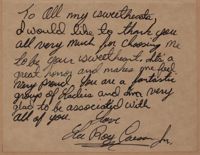 To All my sweethearts,
I would like to thank you
all very much for choosing me
to be your sweetheart. It's a
great honor and makes me feel
very proud. You are a fantastic
group of ladies and am very
glad to be associated with
all of you.
Love
Roy Jr.